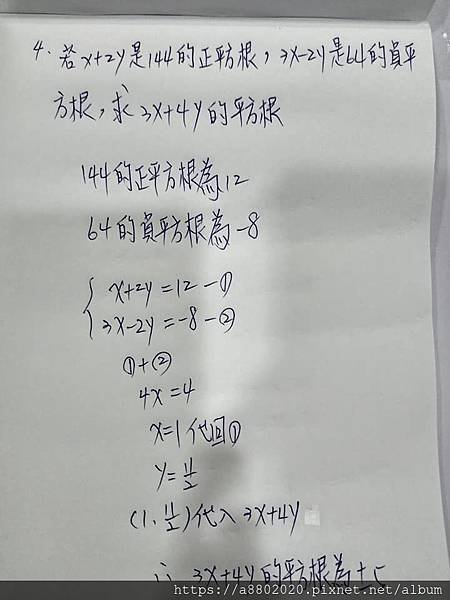 4. 若x+2y是144的正平方根，3x-2y是64的負平
方根，求3x+4y的平方根
144的正平方根為12
64的負平方根為-8
{ x+2y=12 -①
3x-2y=-8 -②
①+②
4x=4
x=1代回①
y=11/2
(1, 11/2)代入3x+4y
∴ 3x+4y的平方根為±5
https://a8802020.pixnet.net/album